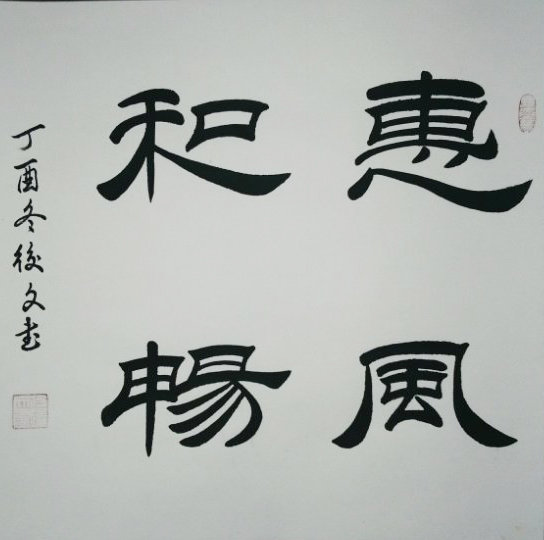 惠風
和暢
丁酉冬後文書